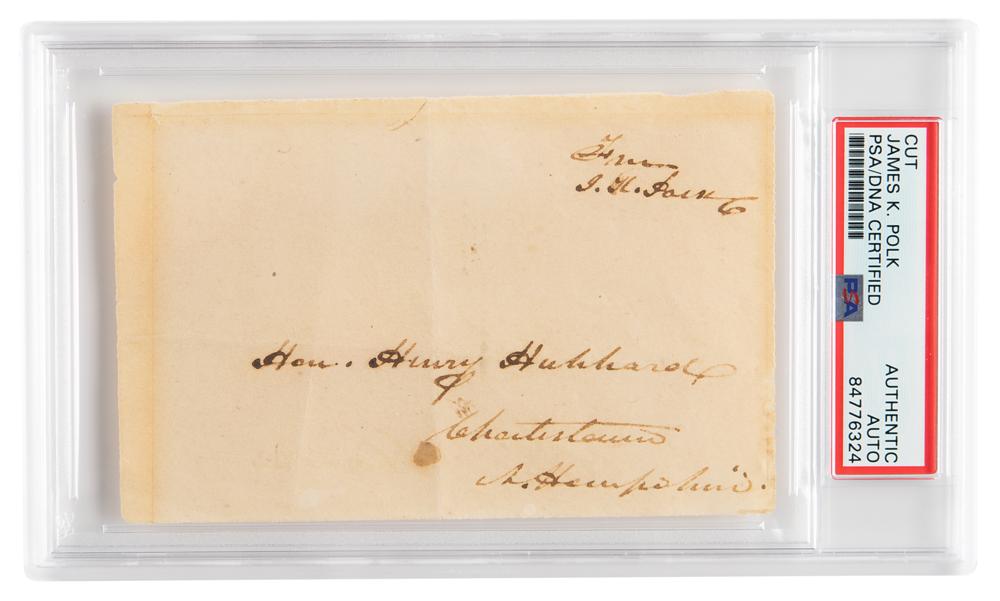 Free
J. K. Polk
Hon. Henry Hubbard
Charlestown
N. Hampshire.
CUT
JAMES K. POLK
PSA/DNA CERTIFIED
PSA
AUTHENTIC
AUTO
84776324